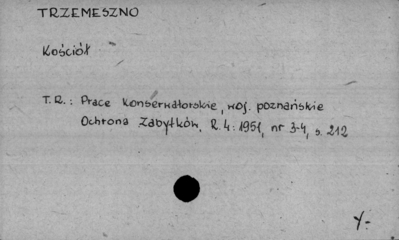 TRZEMESZNO
Kościół
T.R.: Prace konserwatorskie, woj. poznańskie
Ochrona Zabytków, R.4:1951, nr 3-4, s. 212
Y-